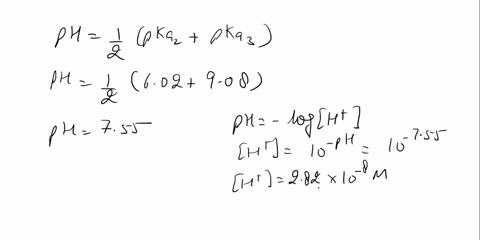 pH = 1/2 (pKa2 + pKa3)
pH = 1/2 (6.02 + 9.08)
pH = 7.55
pH = - log [H⁺]
[H⁺] = 10^-pH = 10^-7.55
[H⁺] = 2.82 × 10^-8 M